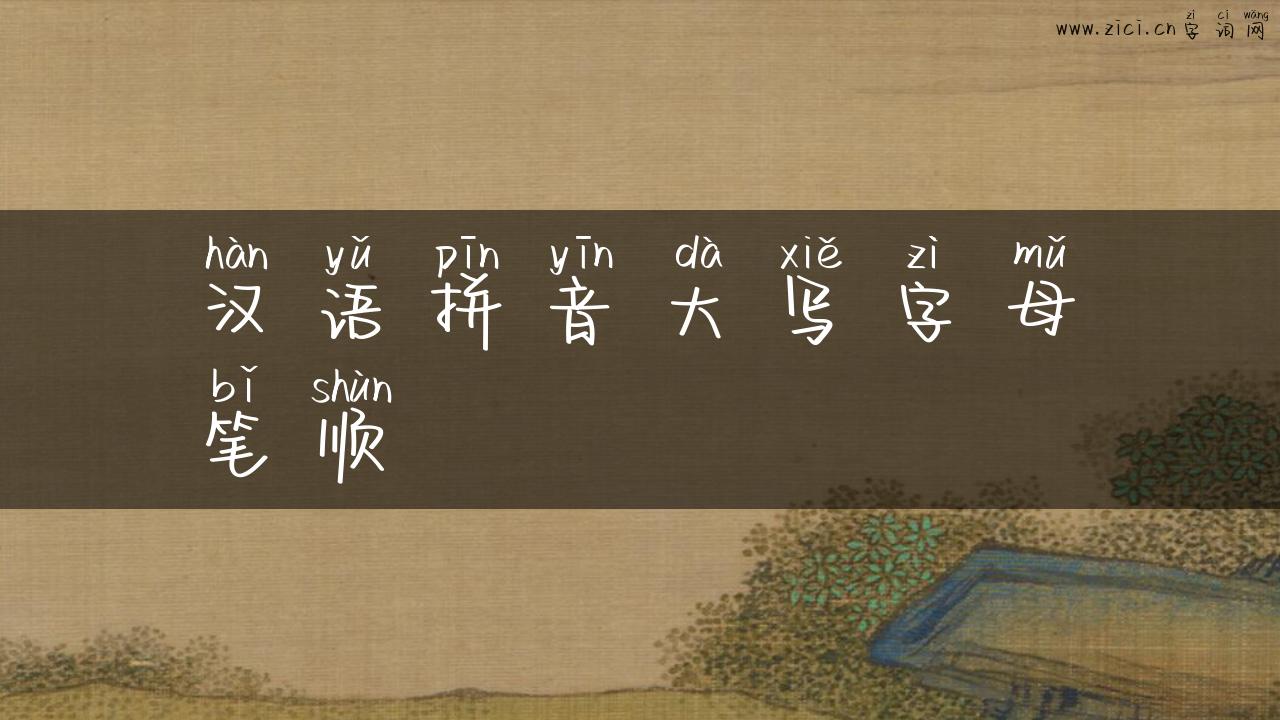 zì cí wǎng
www.zici.cn 字 词 网
hàn yǔ pīn yīn dà xiě zì mǔ
汉 语 拼 音 大 写 字 母
bǐ shùn
笔 顺